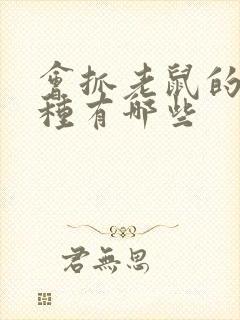 會抓老鼠的
種有哪些
君無思